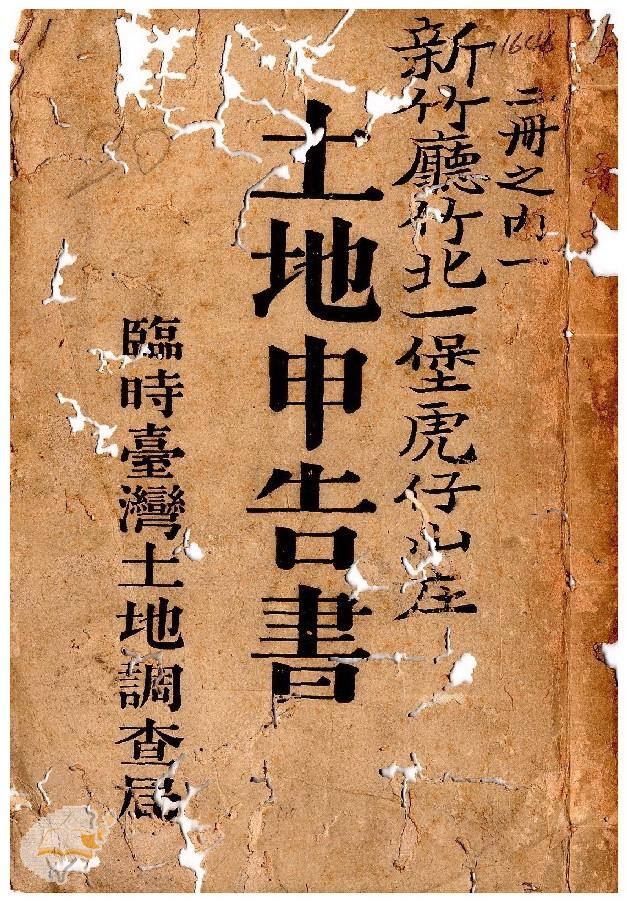 1646
二冊之内一
新竹廳竹北一堡虎仔山庄
土地申告書
臨時臺灣土地調查局
20